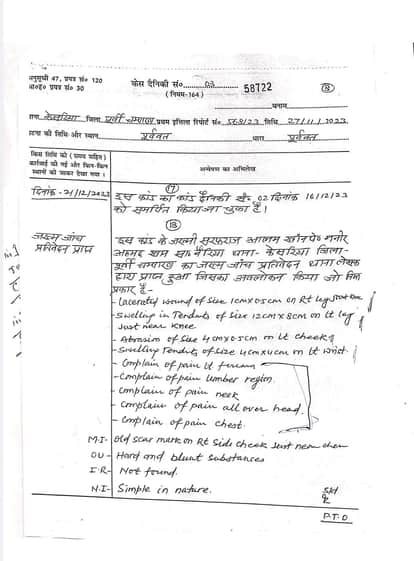 अनुसूची 47, प्रपत्र सं० 120
आ०ह० प्रपत्र सं० 30
केस दैनिकी सं० 03
(नियम-164)
58722
8
बनाम
थाना केसरिया जिला पूर्वी चम्पारण प्रथम इत्तिला रिपोर्ट सं० 568/23 तिथि 27/11/2023
घटना की तिथि और स्थान पूर्ववत धारा पूर्ववत
किस तिथि को (समय सहित)
कार्रवाई की गई और किन-किन
स्थानों को जाकर देखा गया ।
अन्वेषण का अभिलेख
दिनांक-21/12/2023
17
इस कांड का कांड दैनिकी सं०- 02 दिनांक 16/12/23
को समर्पित किया जा चुका है।
18
जख्म जांच
प्रतिवेदन प्राप्त
इस कांड के जख्मी सरफराज आलम खान पे० मनोर
अहमद ग्राम सा० थाना- केसरिया जिला-
पूर्वी चम्पारण का जख्म जाँच प्रतिवेदन थाना लेखक
द्वारा प्राप्त हुआ जिसका अवलोकन किया जो निम्न
प्रकार है-
- Lacerated wound of size 1cm x 0.5cm on Rt leg just
- Swelling in Tenduts of size 12cm x 8cm on Lt leg
Just near Knee
- Abrasion of size 4cm x 0.5cm on Lt cheek
- Swelling Tenduts of size 4cm x 4cm on Lt wrist.
- Complain of pain Lt
- Complain of pain lumber region.
- Complain of pain neck
- Complain of pain all over head.
- Complain of pain chest.
M.I- Old scar mark on Rt side cheek Just near
OU- Hard and blunt substances
I.R- Not found.
N.I- Simple in nature.
P.T.O